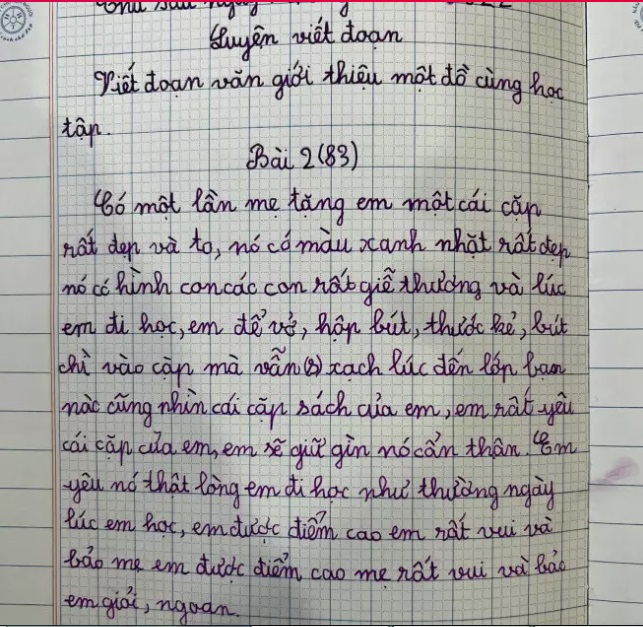 Thứ sáu ngày
Luyện viết đoạn
Viết đoạn văn giới thiệu một đồ cùng học
tập.
Bài 2(83)
Có một lần mẹ tặng em một cái cặp
rất đẹp và to, nó có màu xanh nhặt rất đẹp
nó có hình con các con rất giễ thương và lúc
em đi học, em để vở, hộp bút, thước kẻ, bút
chì vào cặp mà vẫn (s) xach lúc đến lớp bạn
nào cũng nhìn cái cặp sách của em, em rất yêu
cái cặp của em, em sẽ giữ gìn nó cẩn thận. Em
yêu nó thật lòng em đi học như thường ngày
lúc em học, em được điểm cao em rất vui và
bảo mẹ em được điểm cao mẹ rất vui và bảo
em giỏi, ngoan.